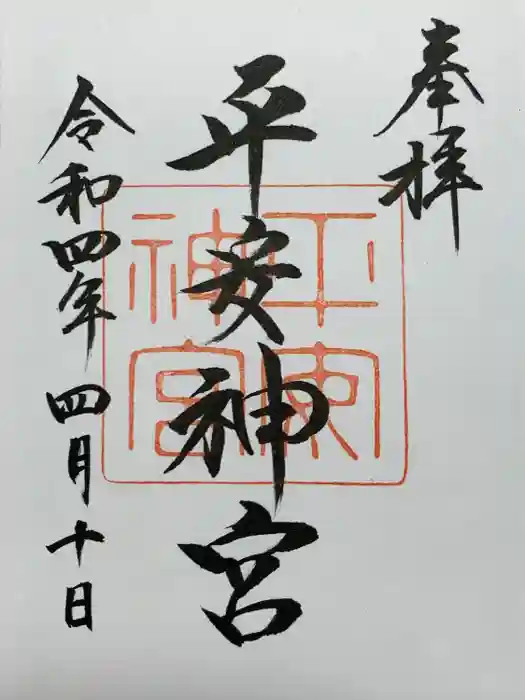 奉拝
平安神宮
令和四年四月十日
平安神宮